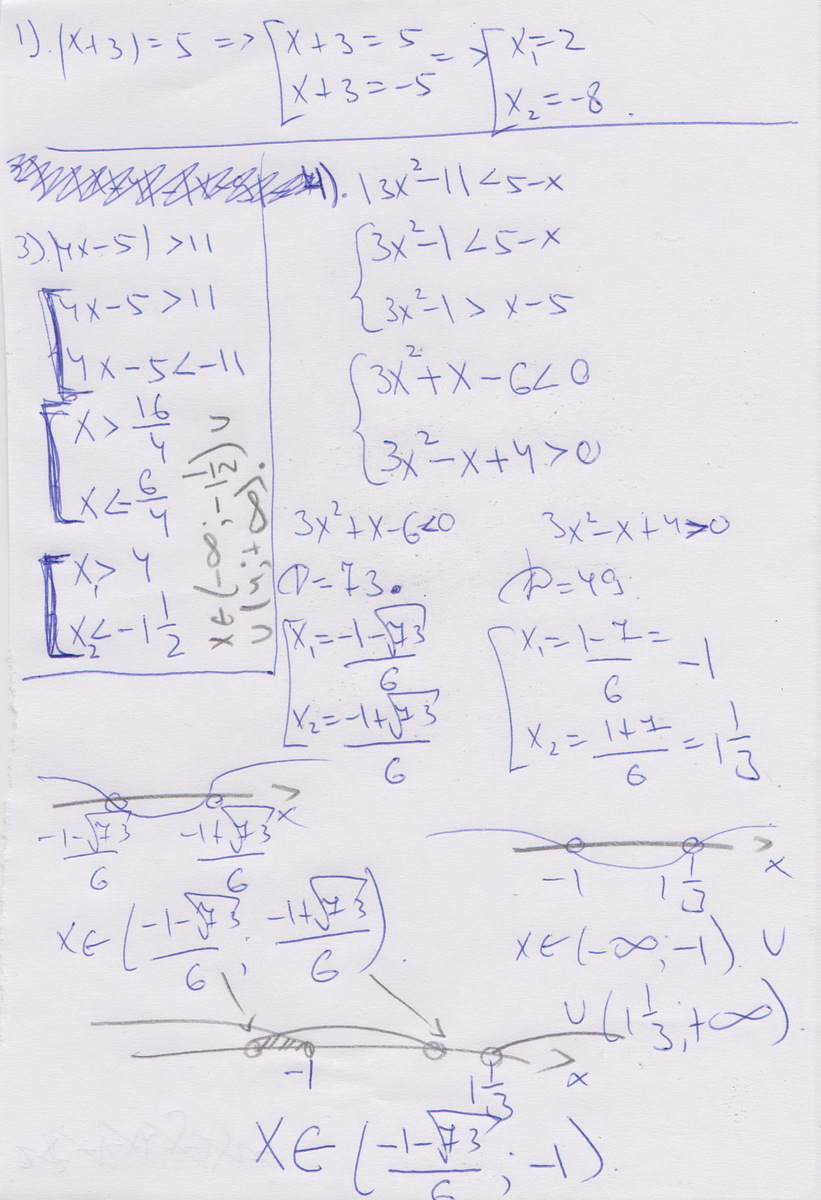 1). |x+3|=5 => [x+3=5 => [x₁=2
x+3=-5 x₂=-8.
3). |4x-5|>11
[4x-5>11
4x-5<-11
[x>16/4
x<-6/4
[x₁>4
x₂<-1 1/2
x∈(-∞;-1 1/2)∪
∪(4;+∞).
4). |3x²-1|<5-x
{3x²-1<5-x
3x²-1>x-5
{3x²+x-6<0
3x²-x+4>0
3x²+x-6<0
D=73.
[x₁=(-1-√73)/6
x₂=(-1+√73)/6
3x²-x+4>0
D=49
[x₁=(1-7)/6=-1
x₂=(1+7)/6=1 1/3
(-1-√73)/6 (-1+√73)/6 x
x∈((-1-√73)/6; (-1+√73)/6).
-1 1 1/3 x
x∈(-∞;-1) ∪
∪(1 1/3;+∞).
-1 1 1/3 x
x∈((-1-√73)/6; -1).